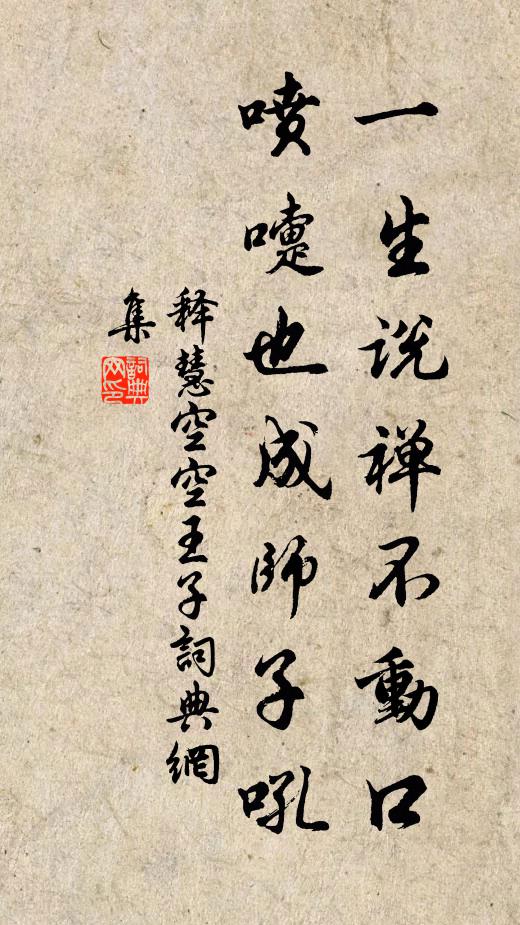 一生说禅不動口
喷嚏也成師子吼
释慧空空王子詞典網
集
詞典網印